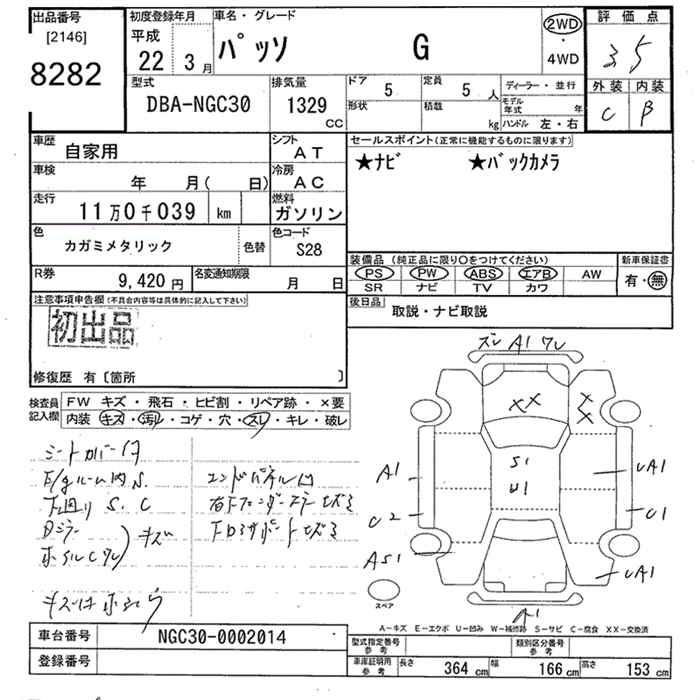 出品番号
[2146]
8282
初度登録年月
平成
22 3月
車名・グレード
パッソ G
2WD
・
4WD
評価点
3 5
外装 内装
C B
型式
DBA-NGC30
排気量
1329
CC
ドア
5
定員
5 人
形状
積載
kg
ディーラー・並行
モデル年式 年
ハンドル 左・右
車歴
自家用
シフト
AT
車検
年 月( 日)
冷房
AC
走行
11万0千039 km
燃料
ガソリン
色
カガミメタリック
色替
色コード
S28
R券
9,420 円
名変通知期限
月 日
セールスポイント(正常に機能するものに限ります)
★ナビ ★バックカメラ
装備品 (純正品に限り○をつけてください)
PS PW ABS エアB AW
SR ナビ TV カワ
新車保証書
有・無
後日品
取説・ナビ取説
注意事項申告欄(不具合内容等は具体的に記入して下さい)
初出品
修復歴 有〔箇所 〕
検査員記入欄
FW キズ・飛石・ヒビ割・リペア跡・×要
内装 キズ・汚レ・コゲ・穴・スレ・キレ・破レ
シートカバー付
E/gルーム内 S.
下廻り S. C
Dミラー
ホイルCワレ
キズ
エンドパネル凹
キズはホシュウ
ズレ A1 ワレ
XX
X
X
S1
U1
A1
C2
AS1
UA1
C1
UA1
A1
スペア
A－キズ E－エクボ U－凹み W－補修跡 S－サビ C－腐食 XX－交換済
車台番号
NGC30-0002014
登録番号
型式指定番号
参考
類別区分番号
参考
車庫証明用
参考
長さ 364 cm 幅 166 cm 高さ 153 cm